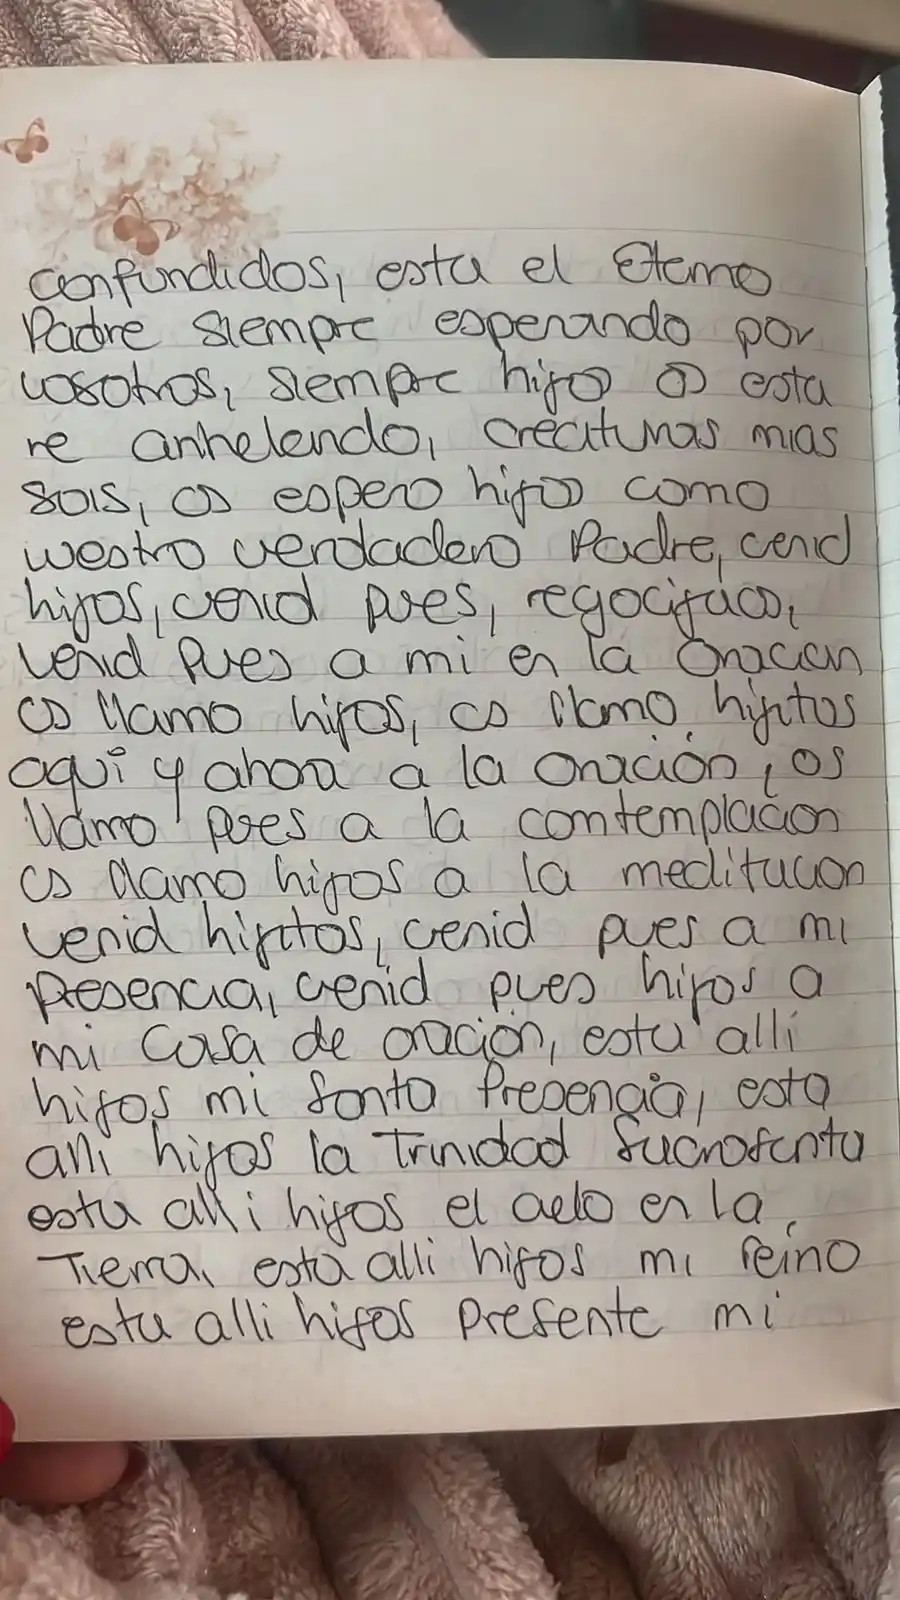 confundidos, esta el Eterno
Padre siempre esperando por
vosotros, siempre hijos os esta
re anhelando, creaturas mias
sois, os espero hijos como
vuestro verdadero Padre, venid
hijos, venid pues, regocijaos,
venid pues a mi en la oracion
os llamo hijos, os llamo hijitos
aqui y ahora a la oración, os
llamo pues a la contemplacion
os llamo hijos a la meditacion
venid hijitos, venid pues a mi
presencia, venid pues hijos a
mi Casa de oración, esta alli
hijos mi Santa Presencia, esta
alli hijos la Trinidad Sacrosanta
esta alli hijos el cielo en la
Tierra, esta alli hijos mi reino
esta alli hijos presente mi